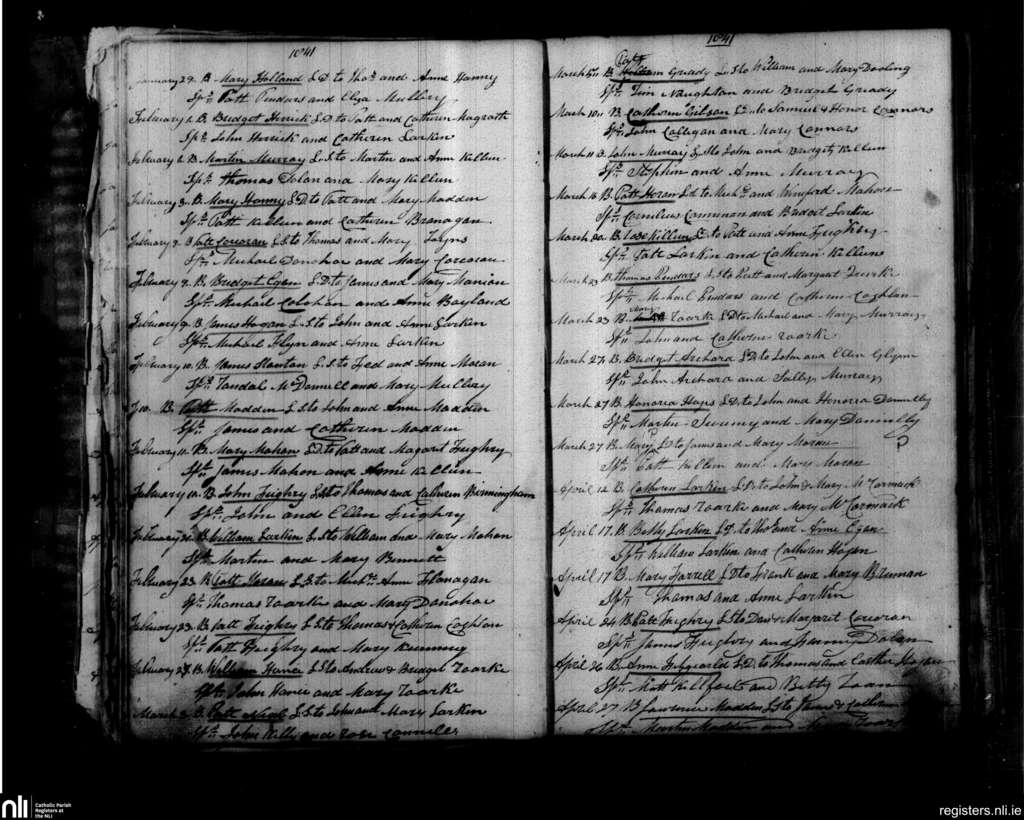 1841
January 29 B Mary Holland L D to Thos and Anne Hanny
Sps Patt Pindars and Eliza Mullery
February 2 B Budget Herrick L D to Patt and Catheren Magrath
Sps John Herrick and Catheren Larkin
February 2 B Martin Murray L S to Martin and Ann Killun
Sps Thomas Dolan and Mary Killun
February 8 B Mary Hanny L D to Patt and Mary Madden
Sps Patt Killun and Catheren Branagan
February 9 B Patt Corcoran L S to Thomas and Mary
Sps Michael Donohoe and Mary Corcoran
February 9 B Budget Egan L D to James and Mary Manion
Sps Michael and Anne Boyland
February 9 B James Hogan L S to John and Anne Larkin
Sps Michael Flyn and Anne Larkin
February 10 B James Stanton L S to Fed and Anne Moran
Sps Tandal McDonnell and Mary Mullery
F 10 B Patt Madden L S to John and Anne Madden
Sps James and Catheren Madden
February 11 B Mary Mahon L D to Patt and Magart Feighry
Sps James Mahon and Anne Killun
February 12 B John Feighry L S to Thomas and Catheren Birmingham
Sps John and Ellen Feighry
February 21 B William Larkin L S to William and Mary Mahon
Sps Martin and Mary Bennett
February 23 B Patt L S to Anne Flanagan
Sps Thomas Roarke and Mary Donohoe
February 23 B Patt Feighry L S to Thomas & Catheren Coghlan
Sps Patt Feighry and Mary
February 28 B William Hanie L S to Andrew & Budget Roarke
Sps John Hanie and Mary Roarke
March 2 B Patt L S to John and Mary Larkin
Sps John Killy and Rose
1841
Patt
March 5 B Grady L S to William and Mary Dooling
Sps Tim Naughton and Bridget Grady
March 10 B Catheren Gilson L D to Samuel & Honor Connors
Sps John Calligan and Mary Connors
March 11 B John Murray L S to John and Budget Killun
Sps Stephen and Anne Murray
March 18 B Patt Horan L S to Michl and Winiford Mahon
Sps Cornelius Canninan and Budget Larkin
March 20 B Rose Killun L D to Patt and Anne Feighry
Sps Patt Larkin and Catheren Killun
March 23 B Thomas Pindars L S to Patt and Margaret Quirke
Sps Michael Pindars and Catheren Coghlan
Mary
March 23 B Roarke L D to Michael and Mary Murray
Sps John and Catheren Roarke
March 27 B Budget Archora L D to John and Ellen Glynn
Sps John Archora and Sally Murray
March 27 B Honoria Hayes L D to John and Honoria Donnelly
Sps Martin and Mary Donnelly
March 27 B Mary L D to James and Mary Moran ?
Sps Patt Killun and Mary Moran
April 12 B Catheren Larkin L D to John & Mary McCormack
Sps Thomas Roarke and Mary McCormack
April 17 B Betty Larkin L D to Thos and Anne Egan
Sps William Larkin and Catheren Hogan
April 17 B Mary Farrell L D to Frank and Mary Brennan
Sps Thomas and Anne Larkin
April 24 B Patt Feighry L S to Dan & Margarit Corcoran
Sps James Feighry and Dolan
April 26 B Anne Fitzgerald L D to Thomas and Easther Hogan
Sps Matt and Betty
April 27 B Lawrence Madden L S to & Catheren
Sps Martin Madden and Mary
nli
Catholic Parish
Registers at
the NLI
registers.nli.ie